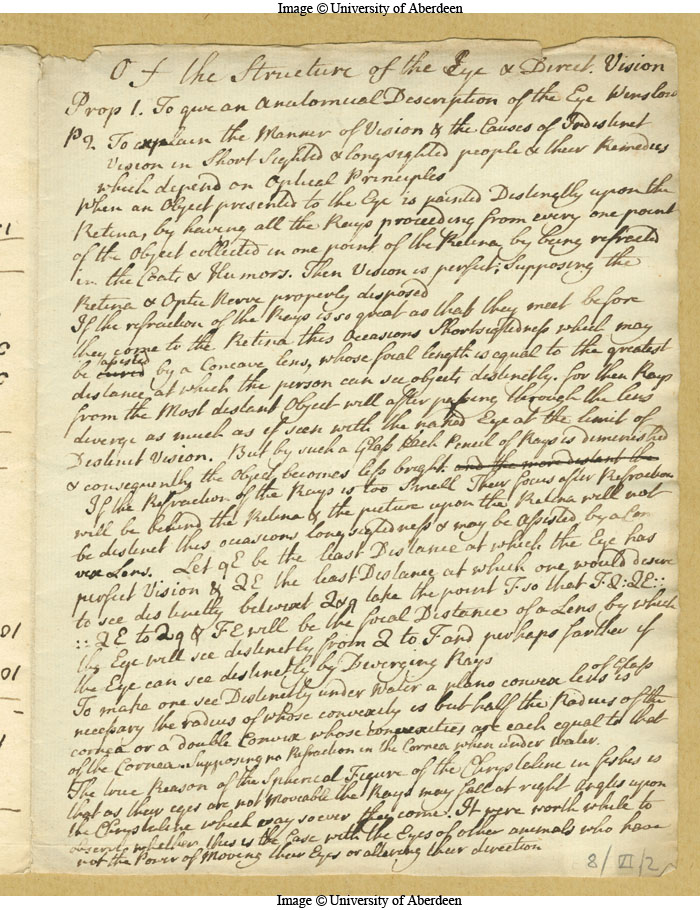 Image © University of Aberdeen
Of the Structure of the Eye & Direct. Vision
Prop 1. To give an Anatomical Description of the Eye Winslow
P 2. To explain the Manner of Vision & the Causes of Indistinct
Vision in Short Sighted & long sighted people & their Remedies
which depend on Optical Principles
When an Object presented to the Eye is painted Distinctly upon the
Retina, by having all the Rays proceeding from every one point
of the Object collected in one point of the Retina by being refracted
in the Coats & Humors. Then Vision is perfect; Supposing the
Retina & Optic Nerve properly disposed
If the refraction of the Rays is so great as that they meet before
they come to the Retina this Occasions Shortsightedness which may
be cured assisted by a Concave lens, whose focal length is equal to the greatest
distance at which the person can see objects distinctly. for then Rays
from the Most distant Object will after passing through the lens
diverge as much as if seen with the naked Eye at the limit of
Distinct Vision. But by such a Glass Each Pencil of Rays is diminished
& consequently the Object becomes less bright. and the more distant the
If the Refraction of the Rays is too Small Their focus after Refraction
will be behind the Retina & the picture upon the Retina will not
be distinct this occasions longsightedness & may be Assisted by a Con
vex Lens. Let qE be the least Distance at which the Eye has
perfect Vision & QE the least Distance at which one would desire
to see distinctly betwixt Q & q take the point F so that FQ : QE ::
:: QE to Qq & FE will be the focal Distance of a Lens by which
the Eye will see distinctly from Q to F and perhaps farther if
the Eye can see distinctly by Diverging Rays
To make one see Distinctly under Water a plano convex lens of Glass is
necessary the radius of whose convexity is but half the Radius of the
cornea or a double Convex whose convexities are each equal to that
of the Cornea. Supposing no Refraction in the Cornea when under Water.
The true Reason of the Spherical Figure of the Chrystaline in fishes is
that as their eyes are not Moveable the Rays may fall at right Angles upon
the Chrystaline which way soever they come. It were worth while to
observe whether this is the Case with the Eyes of other animals who have
not the Power of Moving their Eyes or altering their direction
8/VI/2
Image © University of Aberdeen